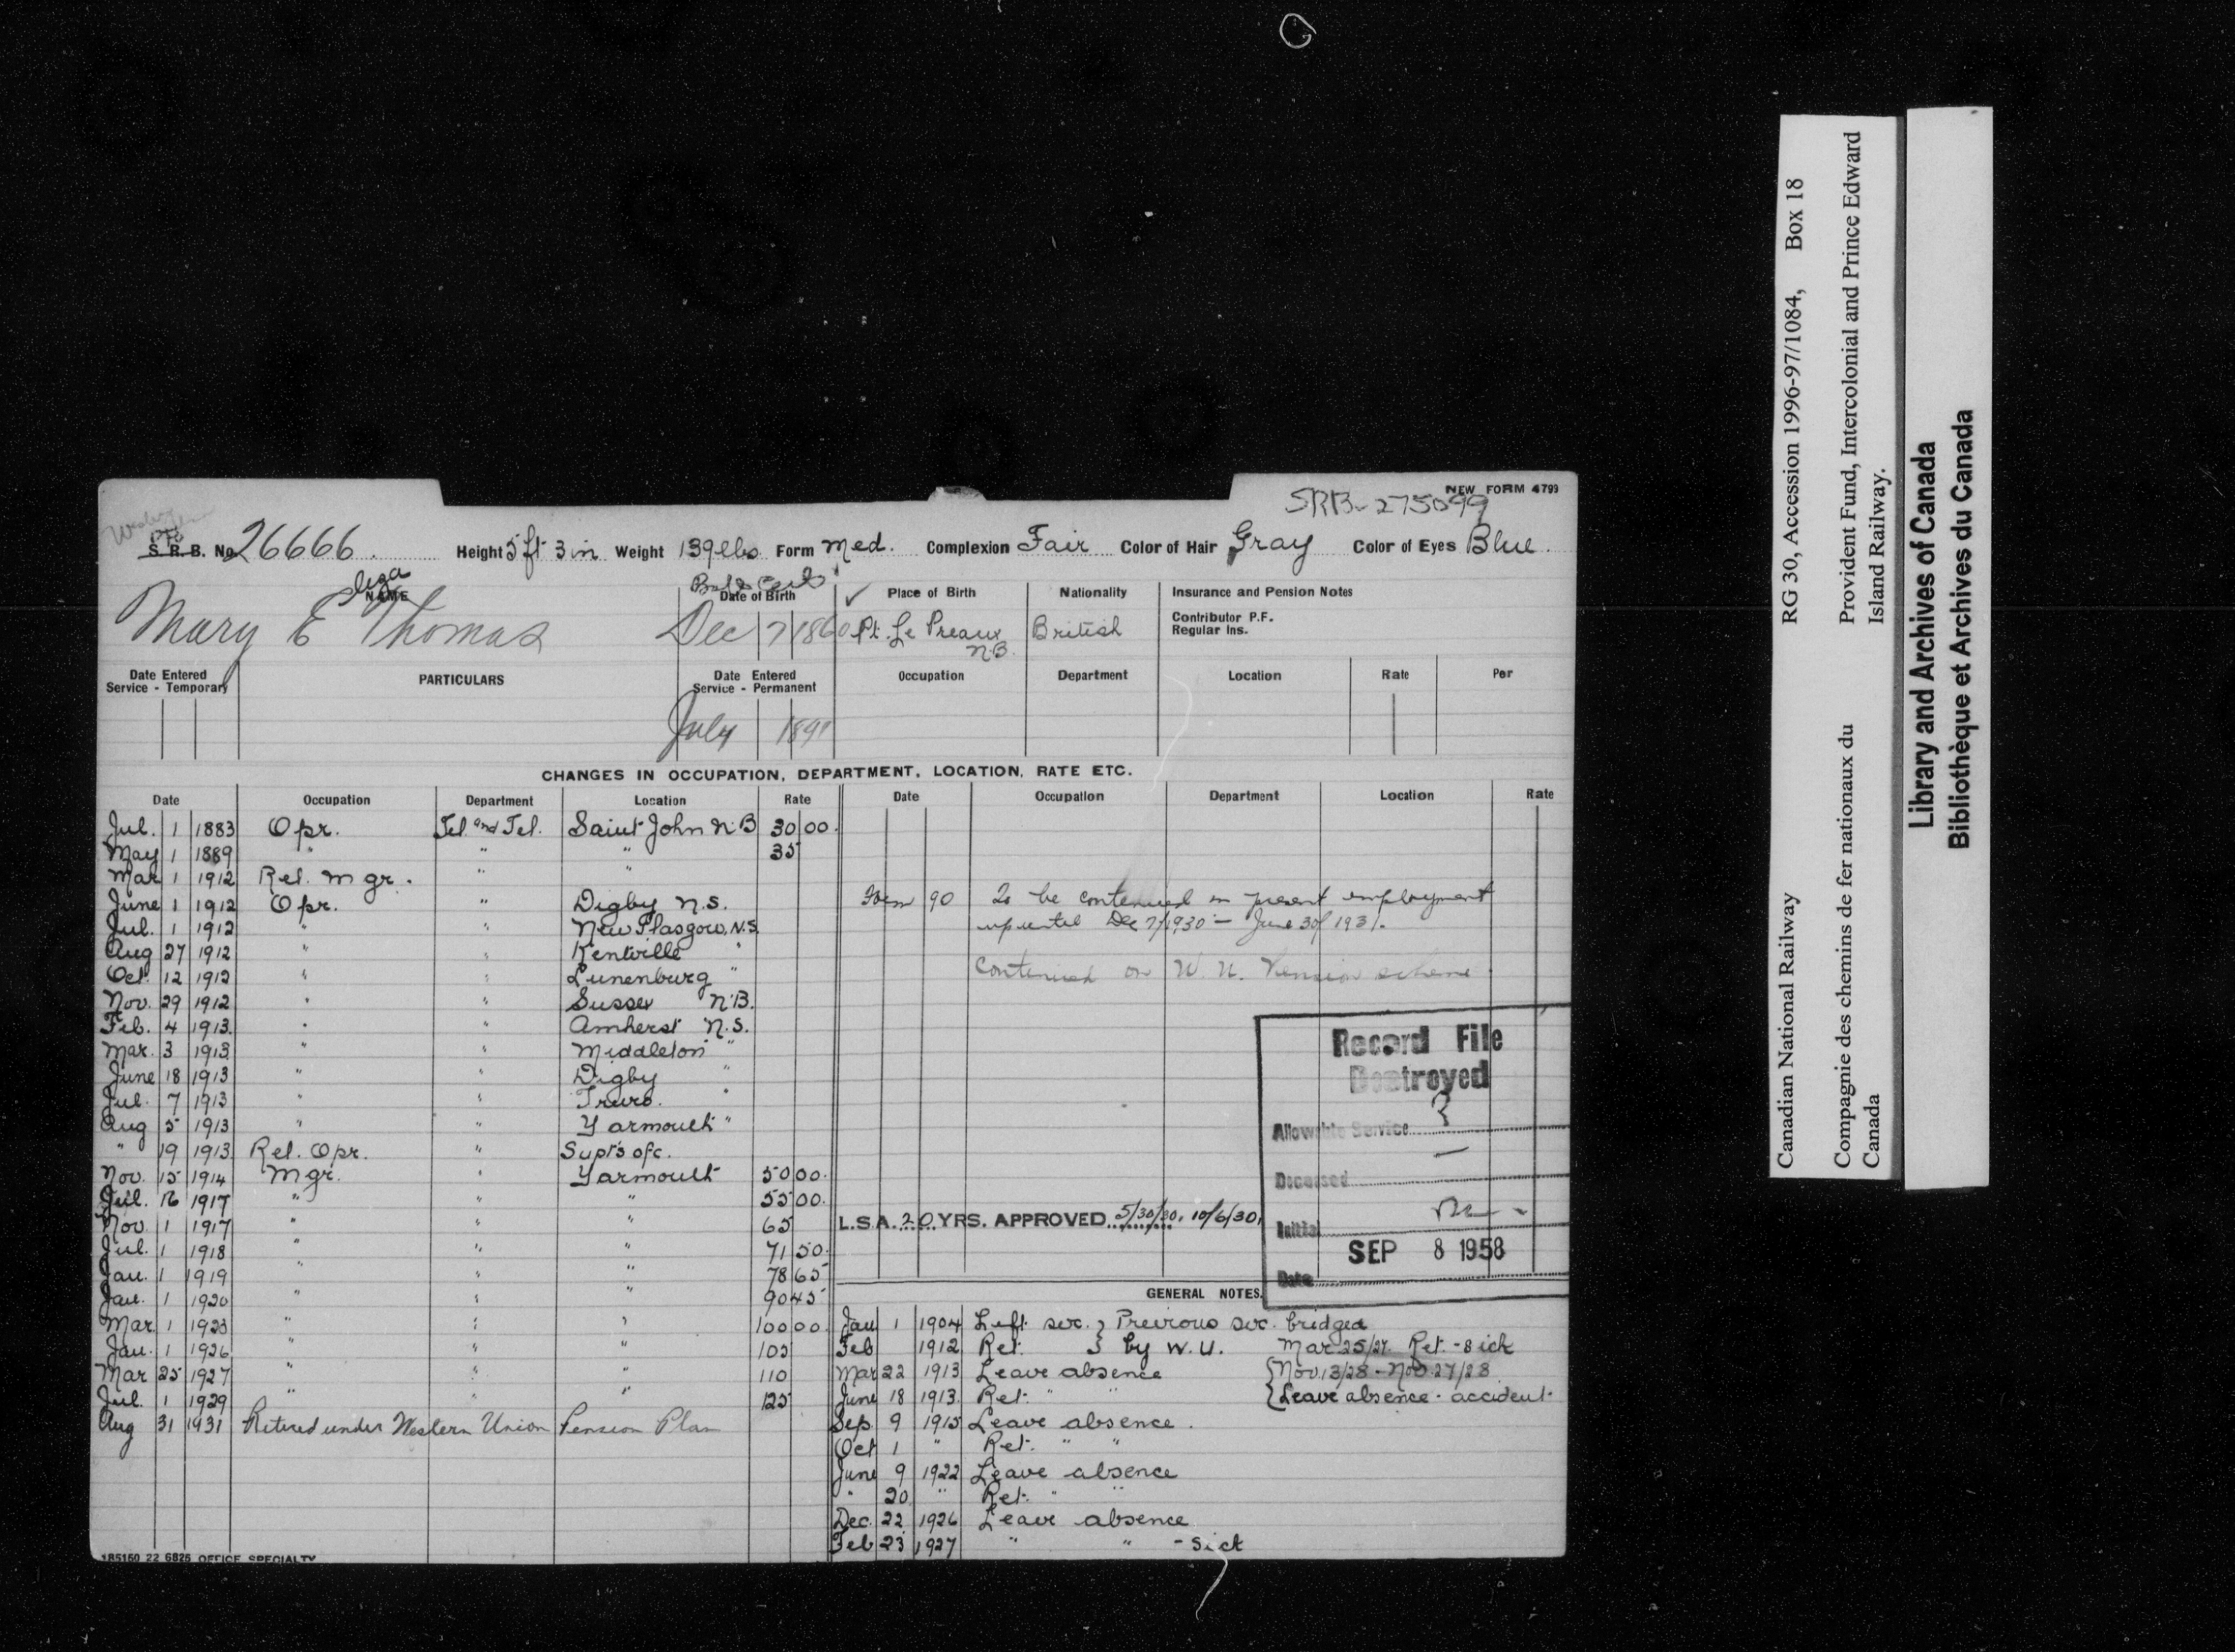 NEW FORM 4799
SRB-275099
S.R.B. No. 26666. Height 5 ft 3 in Weight 139 lbs Form Med. Complexion Fair Color of Hair Gray Color of Eyes Blue.
Eliza
NAME Date of Birth Place of Birth Nationality Insurance and Pension Notes
Mary E Thomas Dec 7 1860 ✓ Pt. Le Preaux N.B. British
Contributor P.F.
Regular Ins.
Date Entered Service - Temporary PARTICULARS Date Entered Service - Permanent Occupation Department Location Rate Per
July 1891
CHANGES IN OCCUPATION, DEPARTMENT, LOCATION, RATE ETC.
Date Occupation Department Location Rate
Jul. 1 1883 Opr. Tel and Tel. Saint John N.B 30 00.
May 1 1889 " " " 35
Mar 1 1912 Rel. Mgr. " "
June 1 1912 Opr. " Digby N.S.
Jul. 1 1912 " " New Glasgow, N.S.
Aug 27 1912 " " Kentville "
Oct. 12 1912 " " Lunenburg "
Nov. 29 1912 " " Sussex N.B.
Feb. 4 1913 " " Amherst N.S.
Mar. 3 1913 " " Middleton "
June 18 1913 " " Digby "
Jul. 7 1913 " " Truro. "
Aug 5 1913 " " Yarmouth "
" 19 1913 Rel. Opr. " Supt's ofc.
Nov. 15 1914 Mgr. " Yarmouth 50 00.
Jul. 16 1917 " " " 55 00.
Nov. 1 1917 " " " 65
Jul. 1 1918 " " " 71 50.
Jan. 1 1919 " " " 78 65
Jan. 1 1920 " " " 90 45
Mar 1 1923 " " " 100 00
Jan. 1 1926 " " " 105
Mar 25 1927 " " " 110
Jul. 1 1929 " " " 125
Aug 31 1931 Retired under Western Union Pension Plan
185160 22 6825 OFFICE SPECIALTY
Date Occupation Department Location Rate
Item 90 To be continued in present employment
up until Dec 7/1930 - June 30/1931.
Continued on W. U. Pension scheme
Record File
Destroyed
Allowable Service
Deceased
Initial
SEP 8 1958
Date
L.S.A. 20 YRS. APPROVED 5/30/30, 10/6/30,
GENERAL NOTES.
Jan 1 1904 Left ser. } Previous ser. bridged
Feb 1912 Ret. } by W.U. Mar 25/27. Ret. - Sick
Mar 22 1913 Leave absence { Nov. 13/28 - Nov. 27/28
June 18 1913. Ret. " " { Leave absence - accident
Sep. 9 1915 Leave absence.
Oct 1 " Ret. " "
June 9 1922 Leave absence
" 20 " Ret. " "
Dec. 22 1926 Leave absence
Feb 23 1927 " " - Sick
Canadian National Railway RG 30, Accession 1996-97/1084, Box 18
Compagnie des chemins de fer nationaux du Provident Fund, Intercolonial and Prince Edward
Canada Island Railway.
Library and Archives of Canada
Bibliothèque et Archives du Canada